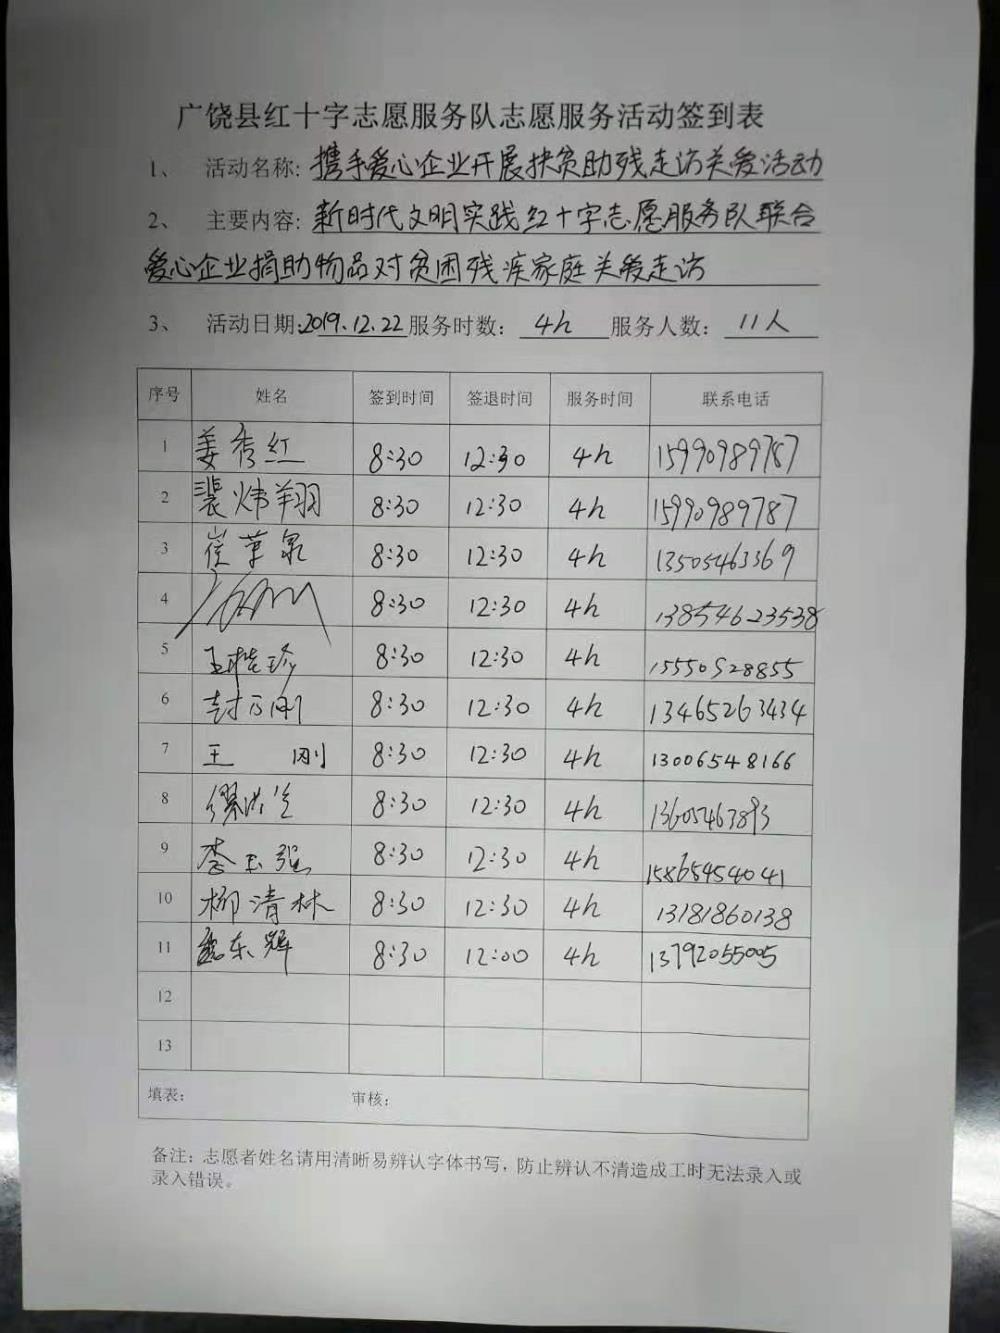 广饶县红十字志愿服务队志愿服务活动签到表
1、 活动名称: 携手爱心企业开展扶贫助残走访关爱活动
2、 主要内容: 新时代文明实践红十字志愿服务队联合
爱心企业捐助物品对贫困残疾家庭关爱走访
3、 活动日期: 2019.12.22 服务时数: 4h 服务人数: 11人
序号 姓名 签到时间 签退时间 服务时间 联系电话
1 姜秀红 8:30 12:30 4h 15990989787
2 裴炜翔 8:30 12:30 4h 15990989787
3 崔革泉 8:30 12:30 4h 13505463369
4 8:30 12:30 4h 13854623538
5 王桂珍 8:30 12:30 4h 15550528855
6 封乃刚 8:30 12:30 4h 13465263434
7 王 刚 8:30 12:30 4h 13006548166
8 8:30 12:30 4h 13605463893
9 李玉强 8:30 12:30 4h 15865454041
10 柳清林 8:30 12:30 4h 13181860138
11 东辉 8:30 12:00 4h 13792055005
12
13
填表: 审核:
备注: 志愿者姓名请用清晰易辨认字体书写, 防止辨认不清造成工时无法录入或
录入错误。